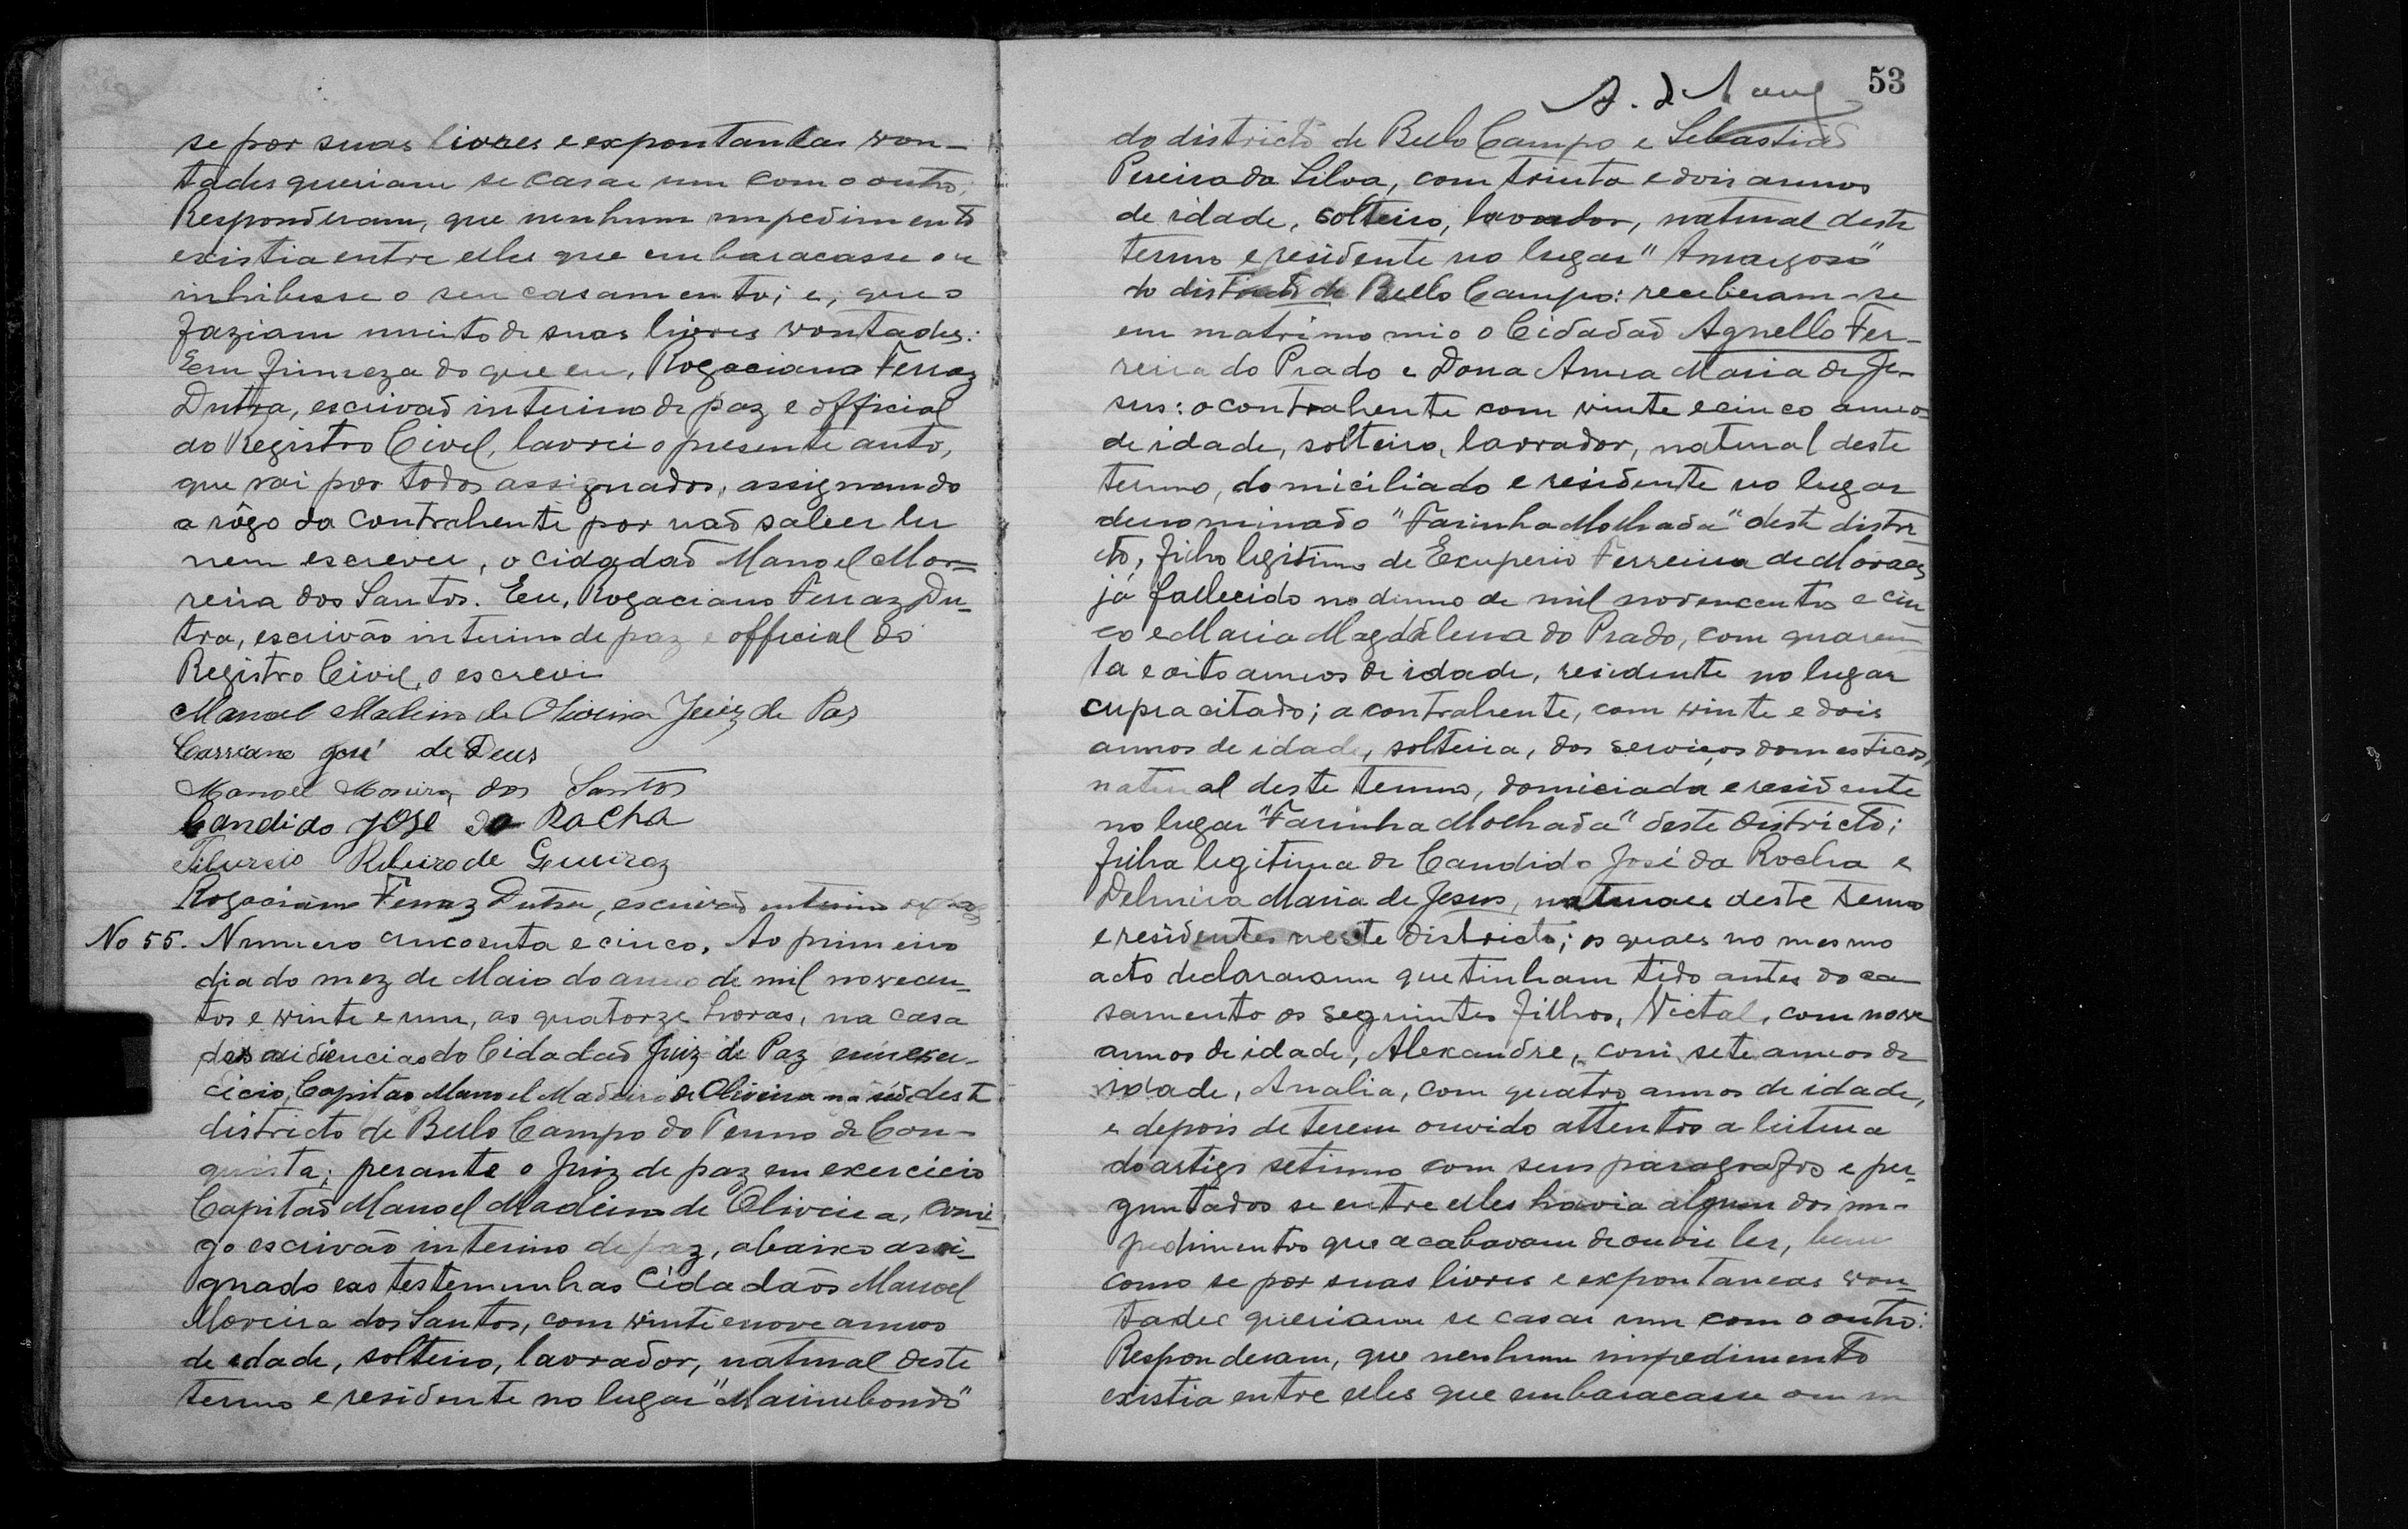 se por suas livres e expontanêas von-
tades queriam se casar um com o outro.
Responderam, que nenhum impedimento
existia entre elles que embaracasse ou
inhibisse o seu casamento; e, que o
faziam muito de suas livres vontades:
Em firmeza do que eu, Rogaciano Ferraz
Dutra, escrivaõ interino de paz e official
do Registro Civel, lavrei o presente auto,
que vai por todos assignados, assignando
a rôgo da contrahente por naõ saber ler
nem escrever, o cidadaõ Manoel Mor=
reira dos Santos. Eu, Rogaciano Ferraz Du-
tra, escrivão interino de paz e official do
Registro Civil, o escrevi
Manoel Madeira de Oliveira Juiz de Paz
Cassiano José de Deus
Manoel Moreira dos Santos
Candido JOSE da Rocha
Tibursio Ribeiro de
Rogaciano Ferraz Dutra, escrivaõ interino
No 55. Numero cincoenta e cinco. Ao primeiro
dia do mez de Maio do anno de mil novecen-
tos e vinte e um, as quatorze horas, na casa
das audiencias do Cidadaõ Juiz de Paz em exer-
cicio, Capitão Manoel Madeira de Oliveira na séde deste
districto de Bello Campo do Termo de Con-
quista; perante o Juiz de paz em exercicio
Capitaõ Manoel Madeira de Oliveira, comi-
go escrivão interino de paz, abaixo assi-
gnado e as testemunhas Cidadaõs Manoel
Moreira dos Santos, com vinte e nove annos
de edade, solteiro, lavrador, natural deste
termo e residente no lugar "Marimbondo"
53
do districto de Bello Campo e Sebastiaõ
Pereira da Silva, com trinta e dois annos
de idade, solteiro, lavrador, natural deste
termo e residente no lugar "Amargoso"
do districto de Bello Campo: receberam-se
em matrimonio o Cidadaõ Agnello Fer-
reira do Prado e Dona Anna Maria de Je-
sus: o contrahente com vinte e cinco annos
de idade, solteiro, lavrador, natural deste
termo, domiciliado e residente no lugar
denominado "Farinha Molhada" deste distri-
cto, filho legitimo de Exuperio Ferreira de Moraes
já fallecido no de mil novencentos e cin
co e Maria Magdalena do Prado, com quaren-
ta e oito annos de idade, residente no lugar
cupracitado; a contrahente, com vinte e dois
annos de idade, solteira, dos serviços domesticos,
natural deste termo, domiciada e residente
no lugar "Farinha Molhada" deste districto;
filha legitima de Candido José da Rocha e
Delmira Maria de Jesus, naturaes deste termo
e residentes neste districto; os quaes no mesmo
acto declararam que tinham tido antes do ca
samento os seguintes filhos, Victal, com nove
annos de idade, Alexandre, com sete annos de
idade, Analia, com quatro annos de idade,
e depois de terem ouvido attentos a leitura
do artigo setimo com seus paragrafos e per-
guntados se entre elles havia algum dos im-
pedimentos que acabavam de ouvir ler, bem
como se por suas livres e expontaneas von-
tades queriam se casar um com o outro:
Responderam, que nenhum impedimento
existia entre elles que embaracasse ou in